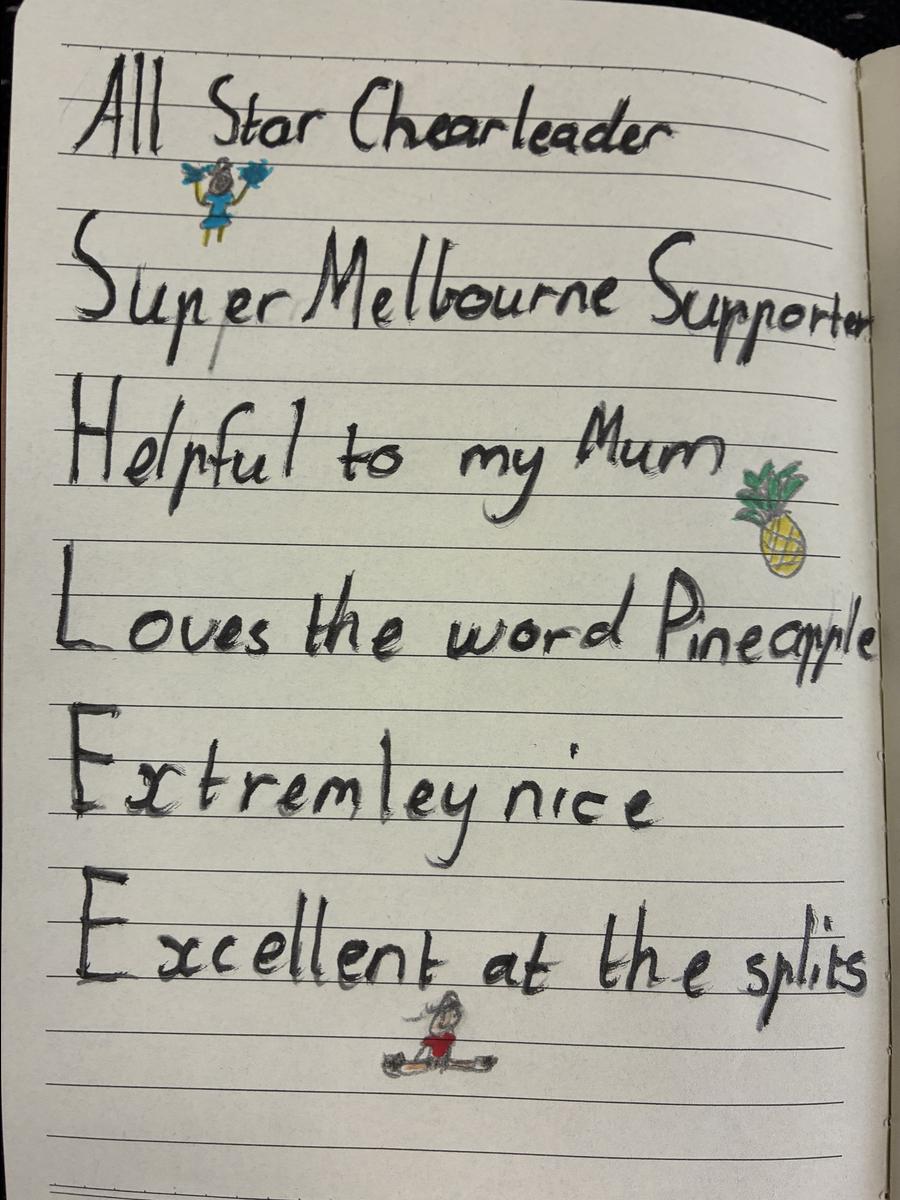 All Star Chearleader
Super Melbourne Supporter
Helpful to my Mum
Loves the word Pineapple
Extremley nice
Excellent at the splits